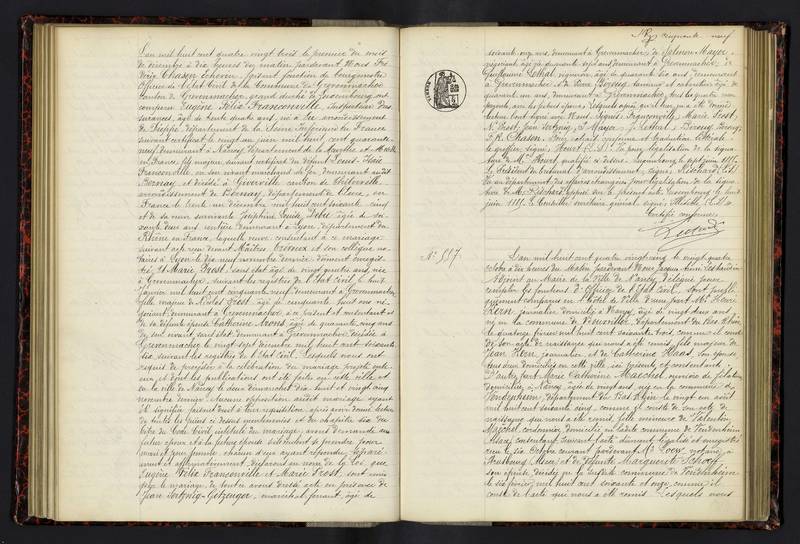 L'an mil huit cent quatre vingt trois le premier du mois
de décembre à dix heures du matin pardevant Nous Fré
déric Chasen Echevin, faisant fonction de bourgmestre
Officier de l'Etat Civil de la Commune de Grevenmacher
Canton de Grevenmacher, grand duché de Luxembourg ont
comparu Eugène Félix Franconville, Inspecteur d'as
surances, âgé de trente quatre ans, né à arrondissement
de Dieppe département de la Seine Inférieure en France
suivant certificat le vingt un juin mil huit cent quarante
neuf demeurant à Nancy, département de la Meurthe et Moselle
en France, fils majeur, suivant certificat du défunt Louis
Franconville, en son vivant marchand de fer demeurant audit
Bernay et décédé à Giverville canton de Thiberville
arrondissement de Bernay, département de l'Eure, en
France le trente un décembre mil huit cent soixante cinq
et de sa mère survivante Joséphine Louise âgée de soi
xante deux ans rentière demeurant à Lyon, département du
Rhône en France, laquelle mère consentant à ce mariage
suivant acte reçu devant Maître et son collègue no
taires à Lyon le dix neuf novembre dernier, dûment enregis
tré. Et Marie Prost, sans état âgée de vingt quatre ans, née
à Grevenmacher, suivant les registres de l'Etat Civil le huit
Janvier mil huit cent cinquante neuf, demeurant à Grevenmacher
fille majeure de Nicolas Prost, âgé de cinquante huit ans né
gociant, demeurant à Grevenmacher, à ce présent et consentant et
de sa défunte épouse Catherine âgée de quarante cinq ans
de son vivant sans état demeurant à Grevenmacher décédée à
Grevenmacher le vingt sept décembre mil huit cent soixante
dix suivant les registres de l'Etat Civil. Lesquels nous ont
requis de procéder à la célébration du mariage projeté entre
eux et dont les publications ont été faites en cette ville et
en la ville de Nancy les deux dimanches dix huit et vingt cinq
novembre dernier. Aucune opposition audit mariage ayant
été signifiée faisant droit à leur réquisition, après avoir donné lecture
de toutes les pièces ci dessus mentionnées et du chapitre six du
titre du Code Civil, intitulé du mariage, avons demandé au
futur époux et à la future épouse s'ils veulent se prendre pour
mari et pour femme, chacun d'eux ayant répondu séparé
ment et affirmativement, déclarons au nom de la loi, que
Eugène Félix Franconville et Marie Prost, sont unis
par le mariage, de tout ce avons dressé acte en présence de
Jean âgé de
cinquante neuf
soixante onze ans, demeurant à Grevenmacher, de Salomon Mayer
négociant âgé de quarante sept ans demeurant à Grevenmacher, de
Guillaume vigneron, âgé de quarante six ans, demeurant
à Grevenmacher et de Pierre tanneur et cabaretier âgé de
quarante un ans, demeurant à Grevenmacher, tous les quatre non
parents, aux futurs époux. Lesquels après qu'il leur en a été donné
lecture l'ont signé avec Nous. Signés: Franconville, Marie Prost,
N. Prost, Jean S. Mayer,
F. K. Chasen. Pour extrait conforme et traduction littérale:
le greffier signé, Hourt (L.S.) Vu pour légalisation de la signa
ture de Mr. Hourt, qualifié ci dessus. Luxembourg, le sept juin 1885.
Le Président du tribunal d'arrondissement, signé, Reichard (L.S.)
Vu au département des affaires étrangères pour légalisation de la signa
ture de Mr. Reichard apposée sur le présent acte. Luxembourg le huit
juin 1885. Le Conseiller secrétaire général signé,
Certifié conforme
N° 597.
L'an mil huit cent quatre vingt cinq le vingt quatre
octobre à dix heures du matin pardevant Nous
Adjoint au Maire de la Ville de Nancy, délégué pour
remplir les fonctions d'officier de l'Etat Civil, sont publi
quement comparus en l'hôtel de Ville d'une part Mr. Henri
Kern, journalier domicilié à Nancy, âgé de vingt deux ans
né en la commune de département du Bas Rhin
le quatorze février mil huit cent soixante trois, comme il conste
de son acte de naissance qui nous a été remis, fils majeur de
Jean Kern, journalier, et de Catherine Haas, son épouse
tous deux domiciliés en cette ville ici présents et consentants;
D'autre part Marie Catherine Maechel, ouvrière de filature
domiciliée à Nancy, âgée de vingt ans, née en la commune de
Fendenheim, département du Bas Rhin le vingt un août
mil huit cent soixante cinq, comme il conste de son acte de
naissance qui nous a été remis, fille mineure de Valentin
Maechel, cordonnier, domicilié en ladite commune de Fendenheim
Alsace, consentant suivant acte dûment légalisé et enregistré
reçu le six octobre courant pardevant Me. Loew notaire, à
Strasbourg Alsace, et de défunte Marguerite
son épouse décédée en la susdite commune de Fendenheim
le six février, mil huit cent soixante et onze, comme il
conste de l'acte qui nous a été remis. Lesquels nous